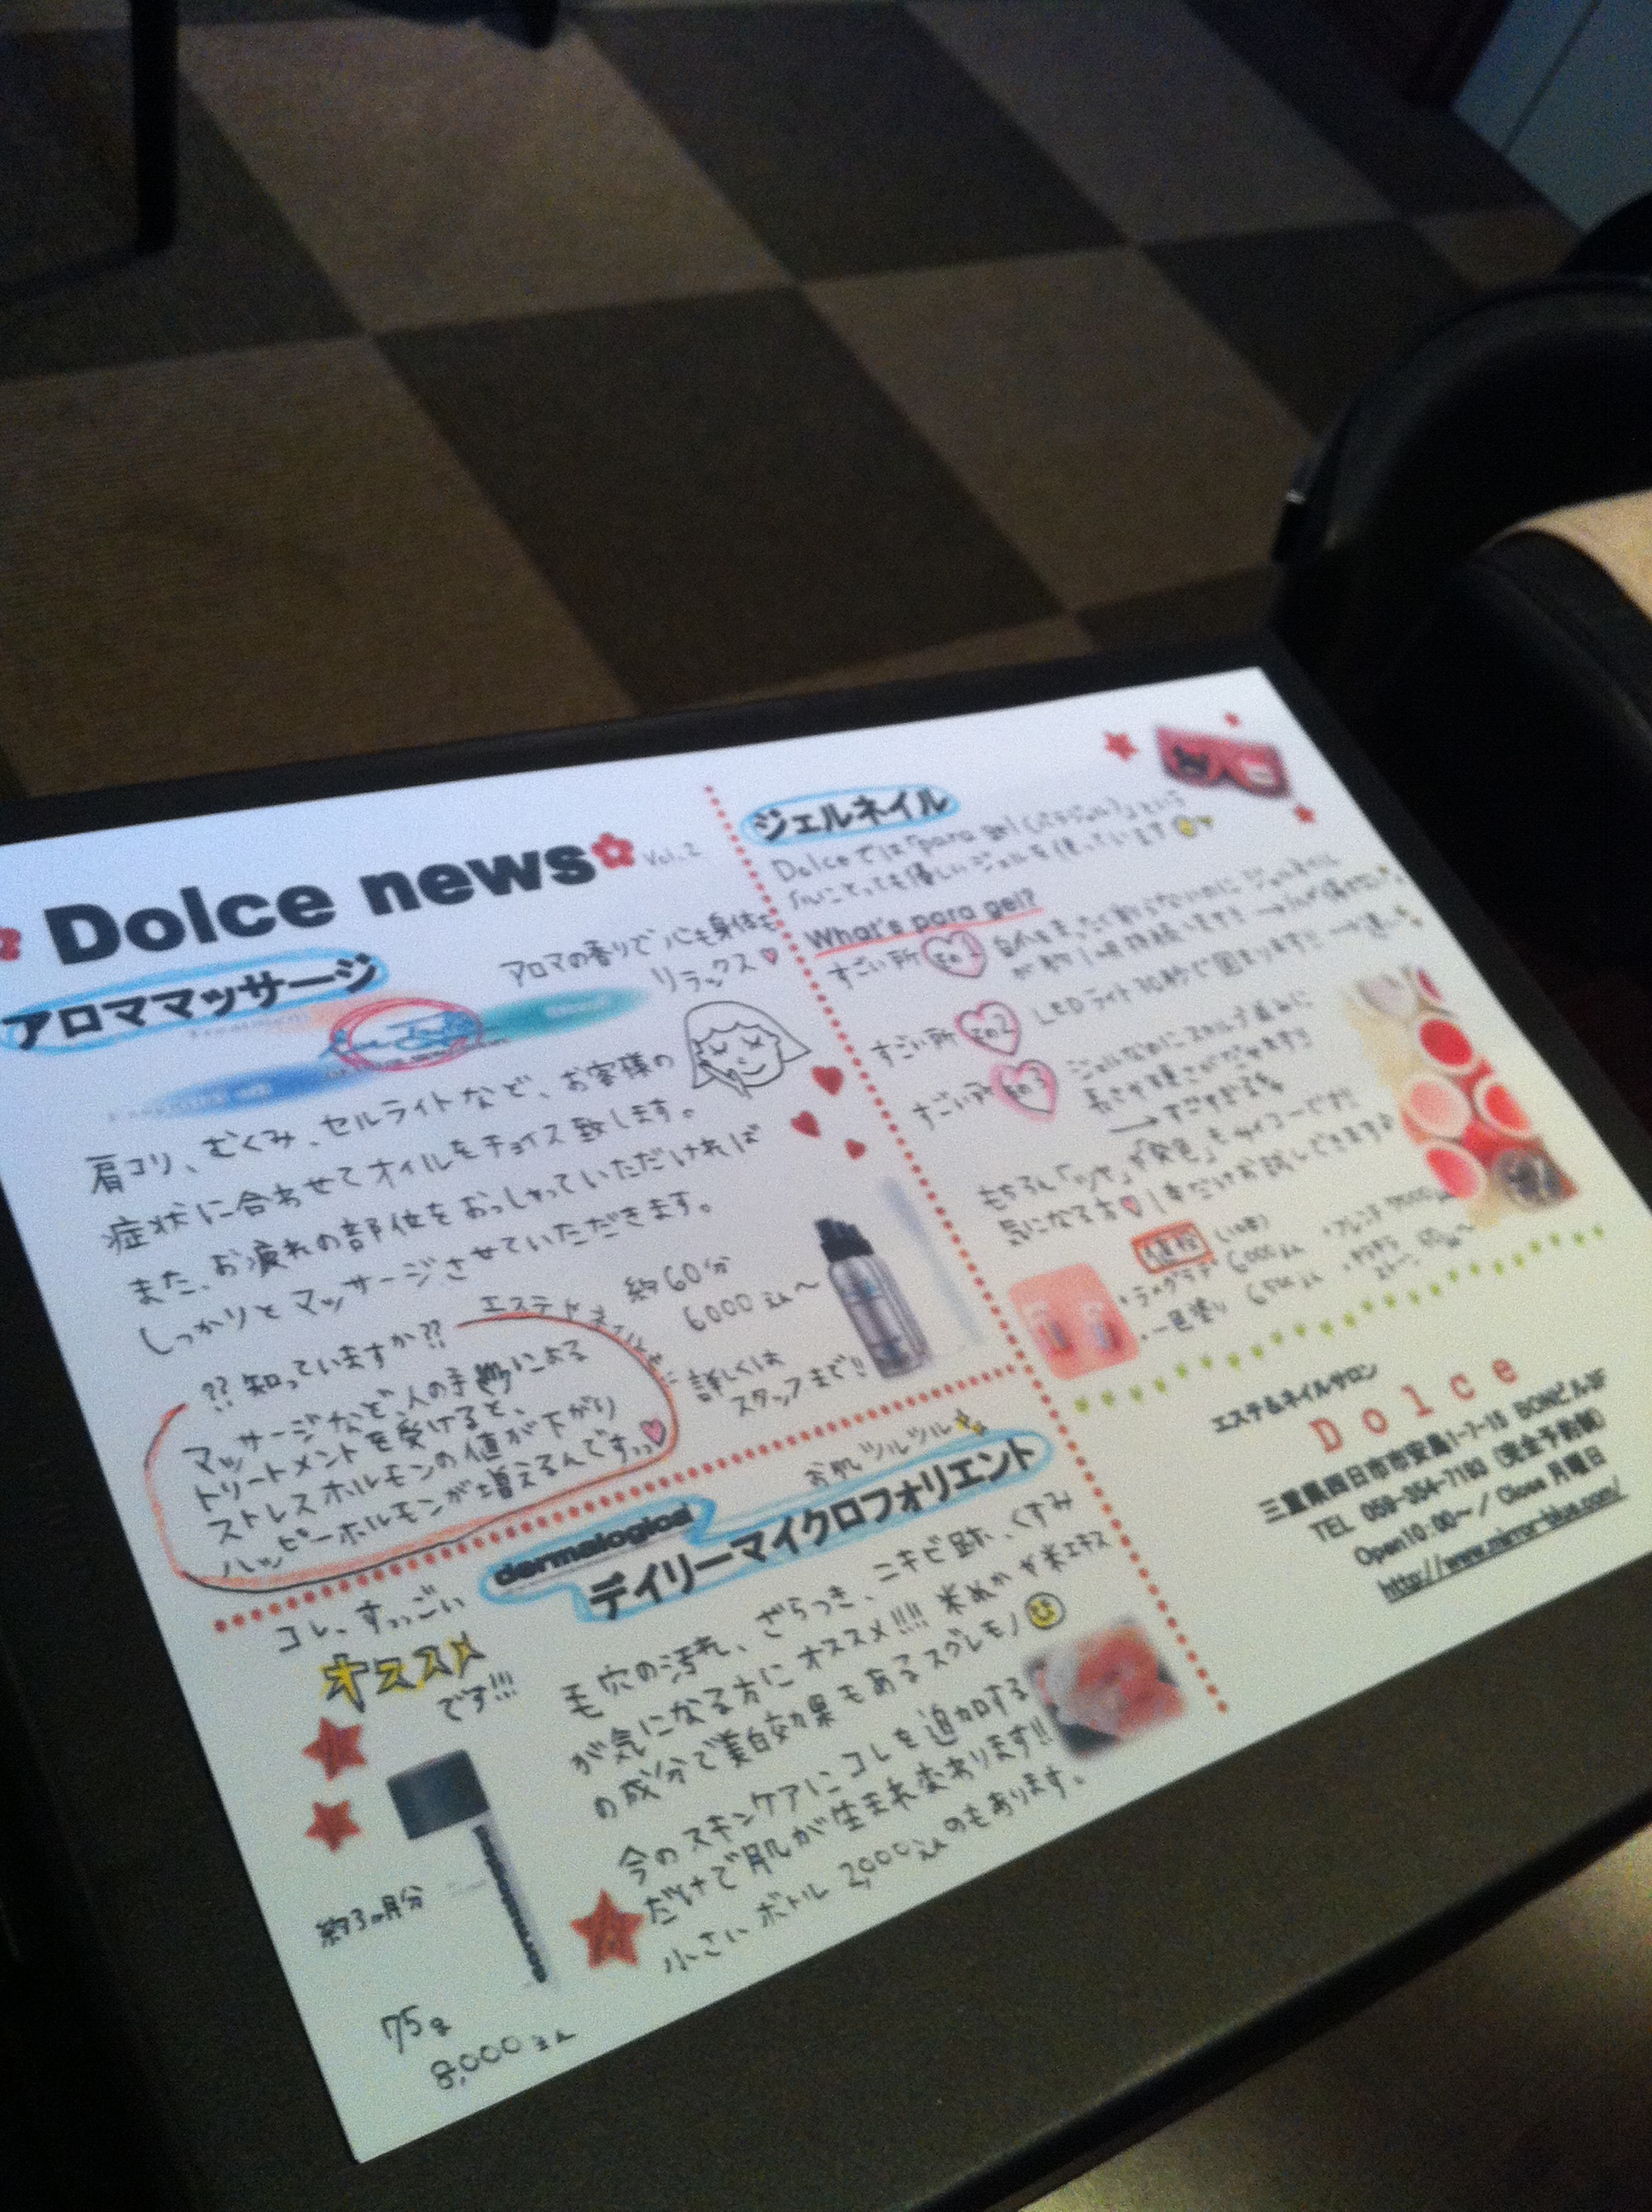 Dolce news
Vol.2
アロママッサージ
アロマの香りで心も身体も
リラックス♡
肩コリ、むくみ、セルライトなど、お客様の
症状に合わせてオイルをチョイス致します。
また、お疲れの部位をおっしゃっていただければ
しっかりとマッサージさせていただきます。
約60分
6000えん〜
詳しくは
スタッフまで!!
??知っていますか??
エステやネイル
マッサージなど、人の手による
トリートメントを受けると、
ストレスホルモンの値が下がり
ハッピーホルモンが増えるんですっっ♡
コレ、すっっごい
オススメ
です!!!
お肌ツルツル
dermalogica
デイリーマイクロフォリエント
毛穴の汚れ、ざらつき、ニキビ跡、くすみ
が気になる方にオススメ!!!! 米ぬかや米エキス
の成分で美白効果もあるスグレモノ
今のスキンケアにコレを追加する
だけで肌が生まれ変わります!!
小さいボトル 2,000えんのもあります。
約3ヵ月分
75g
8,000えん
ジェルネイル
Dolceでは「para gel(パラジェル)」という
What's para gel?
すごい所 その1
すごい所 その2 LEDライト30秒で固まります!!
すごい所 その3 ジェルなのにスカルプ並みに
長さや硬さがだせます!!
もちろん「ツヤ」や「発色」もサイコーです!!
気になる方♡1本だけお試しできます♪
・ラメグラデ 6000えん
・一色塗り 6500えん
エステ&ネイルサロン
Dolce
三重県四日市市安島1-7-15 BONビル2F
TEL 059-354-7183 (完全予約制)
Open10:00〜/ Close 月曜日
http://www.mirror-blue.com/